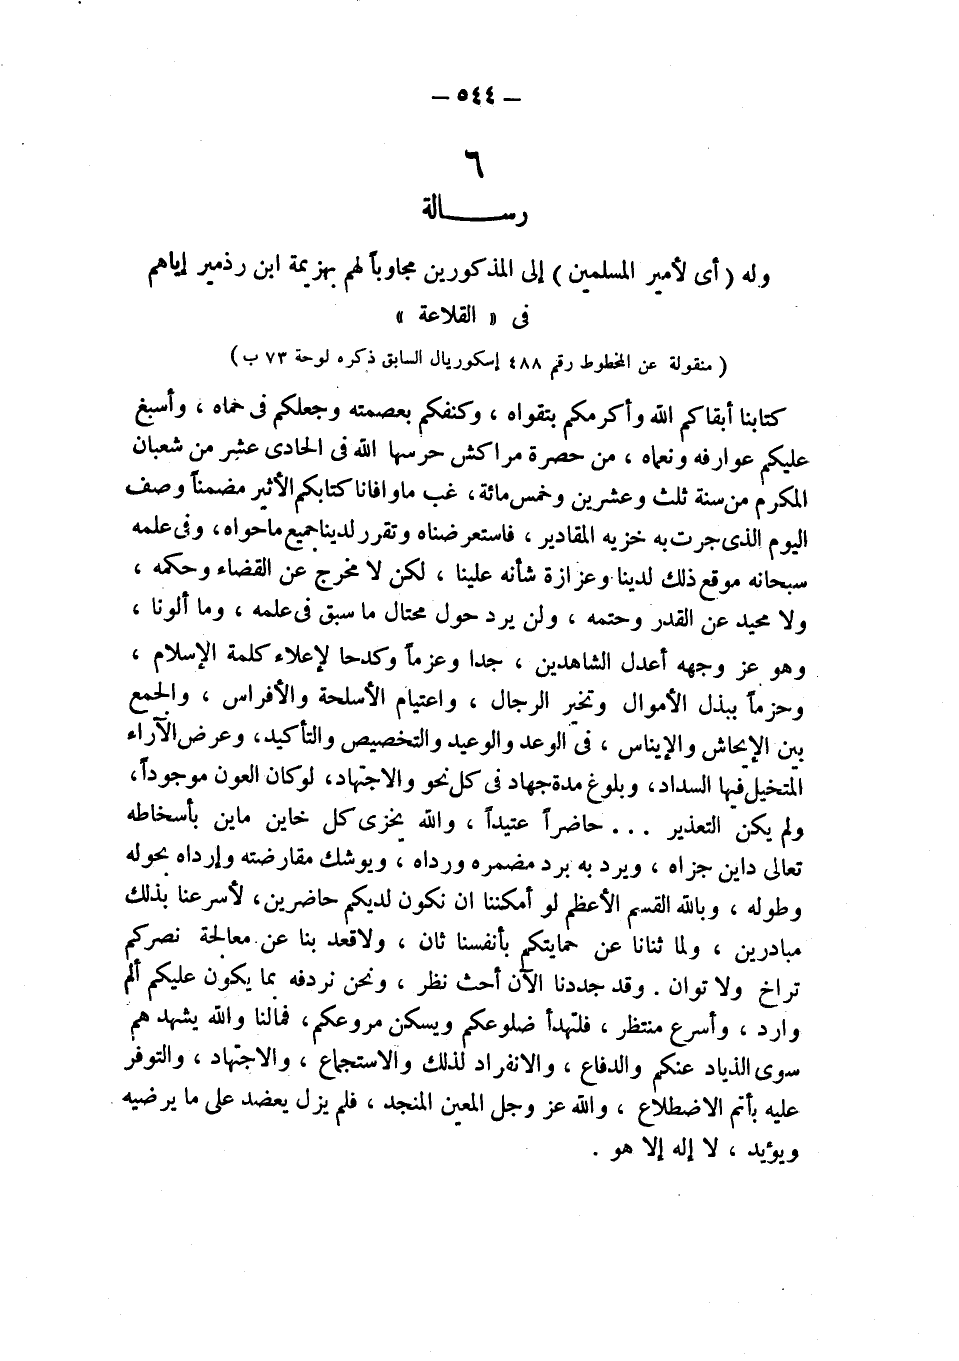 — ٥٤٤ —
٦
رسـالة
وله ( أى لأمير المسلمين ) إلى المذكورين مجاوباً لهم بهزيمة ابن رذمير إياهم
فى « القلاعة »
( منقولة عن المخطوط رقم ٤٨٨ إسكوريال السابق ذكره لوحة ٧٣ ب )
كتابنا أبقاكم الله وأكرمكم بتقواه ، وكنفكم بعصمته وجعلكم فى حماه ، وأسبغ
عليكم عوارفه ونعماه ، من حصرة مراكش حرسها الله فى الحادى عشر من شعبان
المكرم من سنة ثلث وعشرين وخمس مائة، غب ماوافانا كتابكم الأثير مضمناً وصف
اليوم الذى جرت به خزيه المقادير ، فاستعرضناه وتقرر لدينا جميع ماحواه، وفى علمه
سبحانه موقع ذلك لدينا وعزازة شأنه علينا ، لكن لا مخرج عن القضاء وحكمه ،
ولا محيد عن القدر وحتمه ، ولن يرد حول محتال ما سبق فى علمه ، وما ألونا ،
وهو عز وجهه أعدل الشاهدين ، جدا وعزماً وكدحا لإعلاء كلمة الإسلام ،
وحزماً ببذل الأموال وتخير الرجال ، واعتيام الأسلحة والأفراس ، والجمع
بين الإيحاش والإيناس ، فى الوعد والوعيد والتخصيص والتأكيد، وعرض الآراء
المتخيل فيها السداد، وبلوغ مدة جهاد فى كل نحو والاجتهاد، لوكان العون موجوداً،
ولم يكن التعذير ... حاضراً عتيداً ، والله يخزى كل خاين ماين بأسخاطه
تعالى داين جزاه ، ويرد به برد مضمره ورداه ، ويوشك مقارضته وإرداه بحوله
وطوله ، وبالله القسم الأعظم لو أمكننا ان نكون لديكم حاضرين، لأسرعنا بذلك
مبادرين ، ولما ثنانا عن حمايتكم بأنفسنا ثان ، ولاقعد بنا عن معالجة نصركم
تراخ ولا توان . وقد جددنا الآن أحث نظر ، ونحن نردفه بما يكون عليكم ألم
وارد ، وأسرع منتظر ، فلتهدأ ضلوعكم ويسكن مروعكم، فمالنا والله يشهد هم
سوى الذياد عنكم والدفاع ، والانفراد لذلك والاستجماع ، والاجتهاد ، والتوفر
عليه بأتم الاضطلاع ، والله عز وجل المعين المنجد ، فلم يزل يعضد على ما يرضيه
ويؤيد ، لا إله إلا هو .